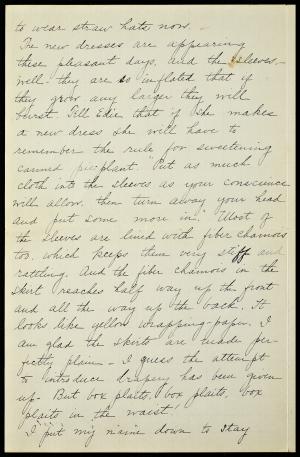 to wear straw hats now. –
The new dresses are appearing
these pleasant days, and the sleeves –
well – they are so inflated that if
they grow any larger they will
burst. Tell Edie that if she makes
a new dress she will have to
remember the rule for sweetening
canned pieplant. "Put as much
cloth into the sleeves as your conscience
will allow, then turn away your head
and put some more in." Most of
the sleeves are lined with fiber chamois
too, which keeps them very stiff and
rattling. And the fiber chamois in the
skirt reaches half way up the front
and all the way up the back. It
looks like yellow wrapping-paper. I
am glad the skirts are made per-
fectly plain – I guess the attempt
to introduce drapery has been given
up – But box plaits, box plaits, box
plaits in the waist!
I put my name down to stay